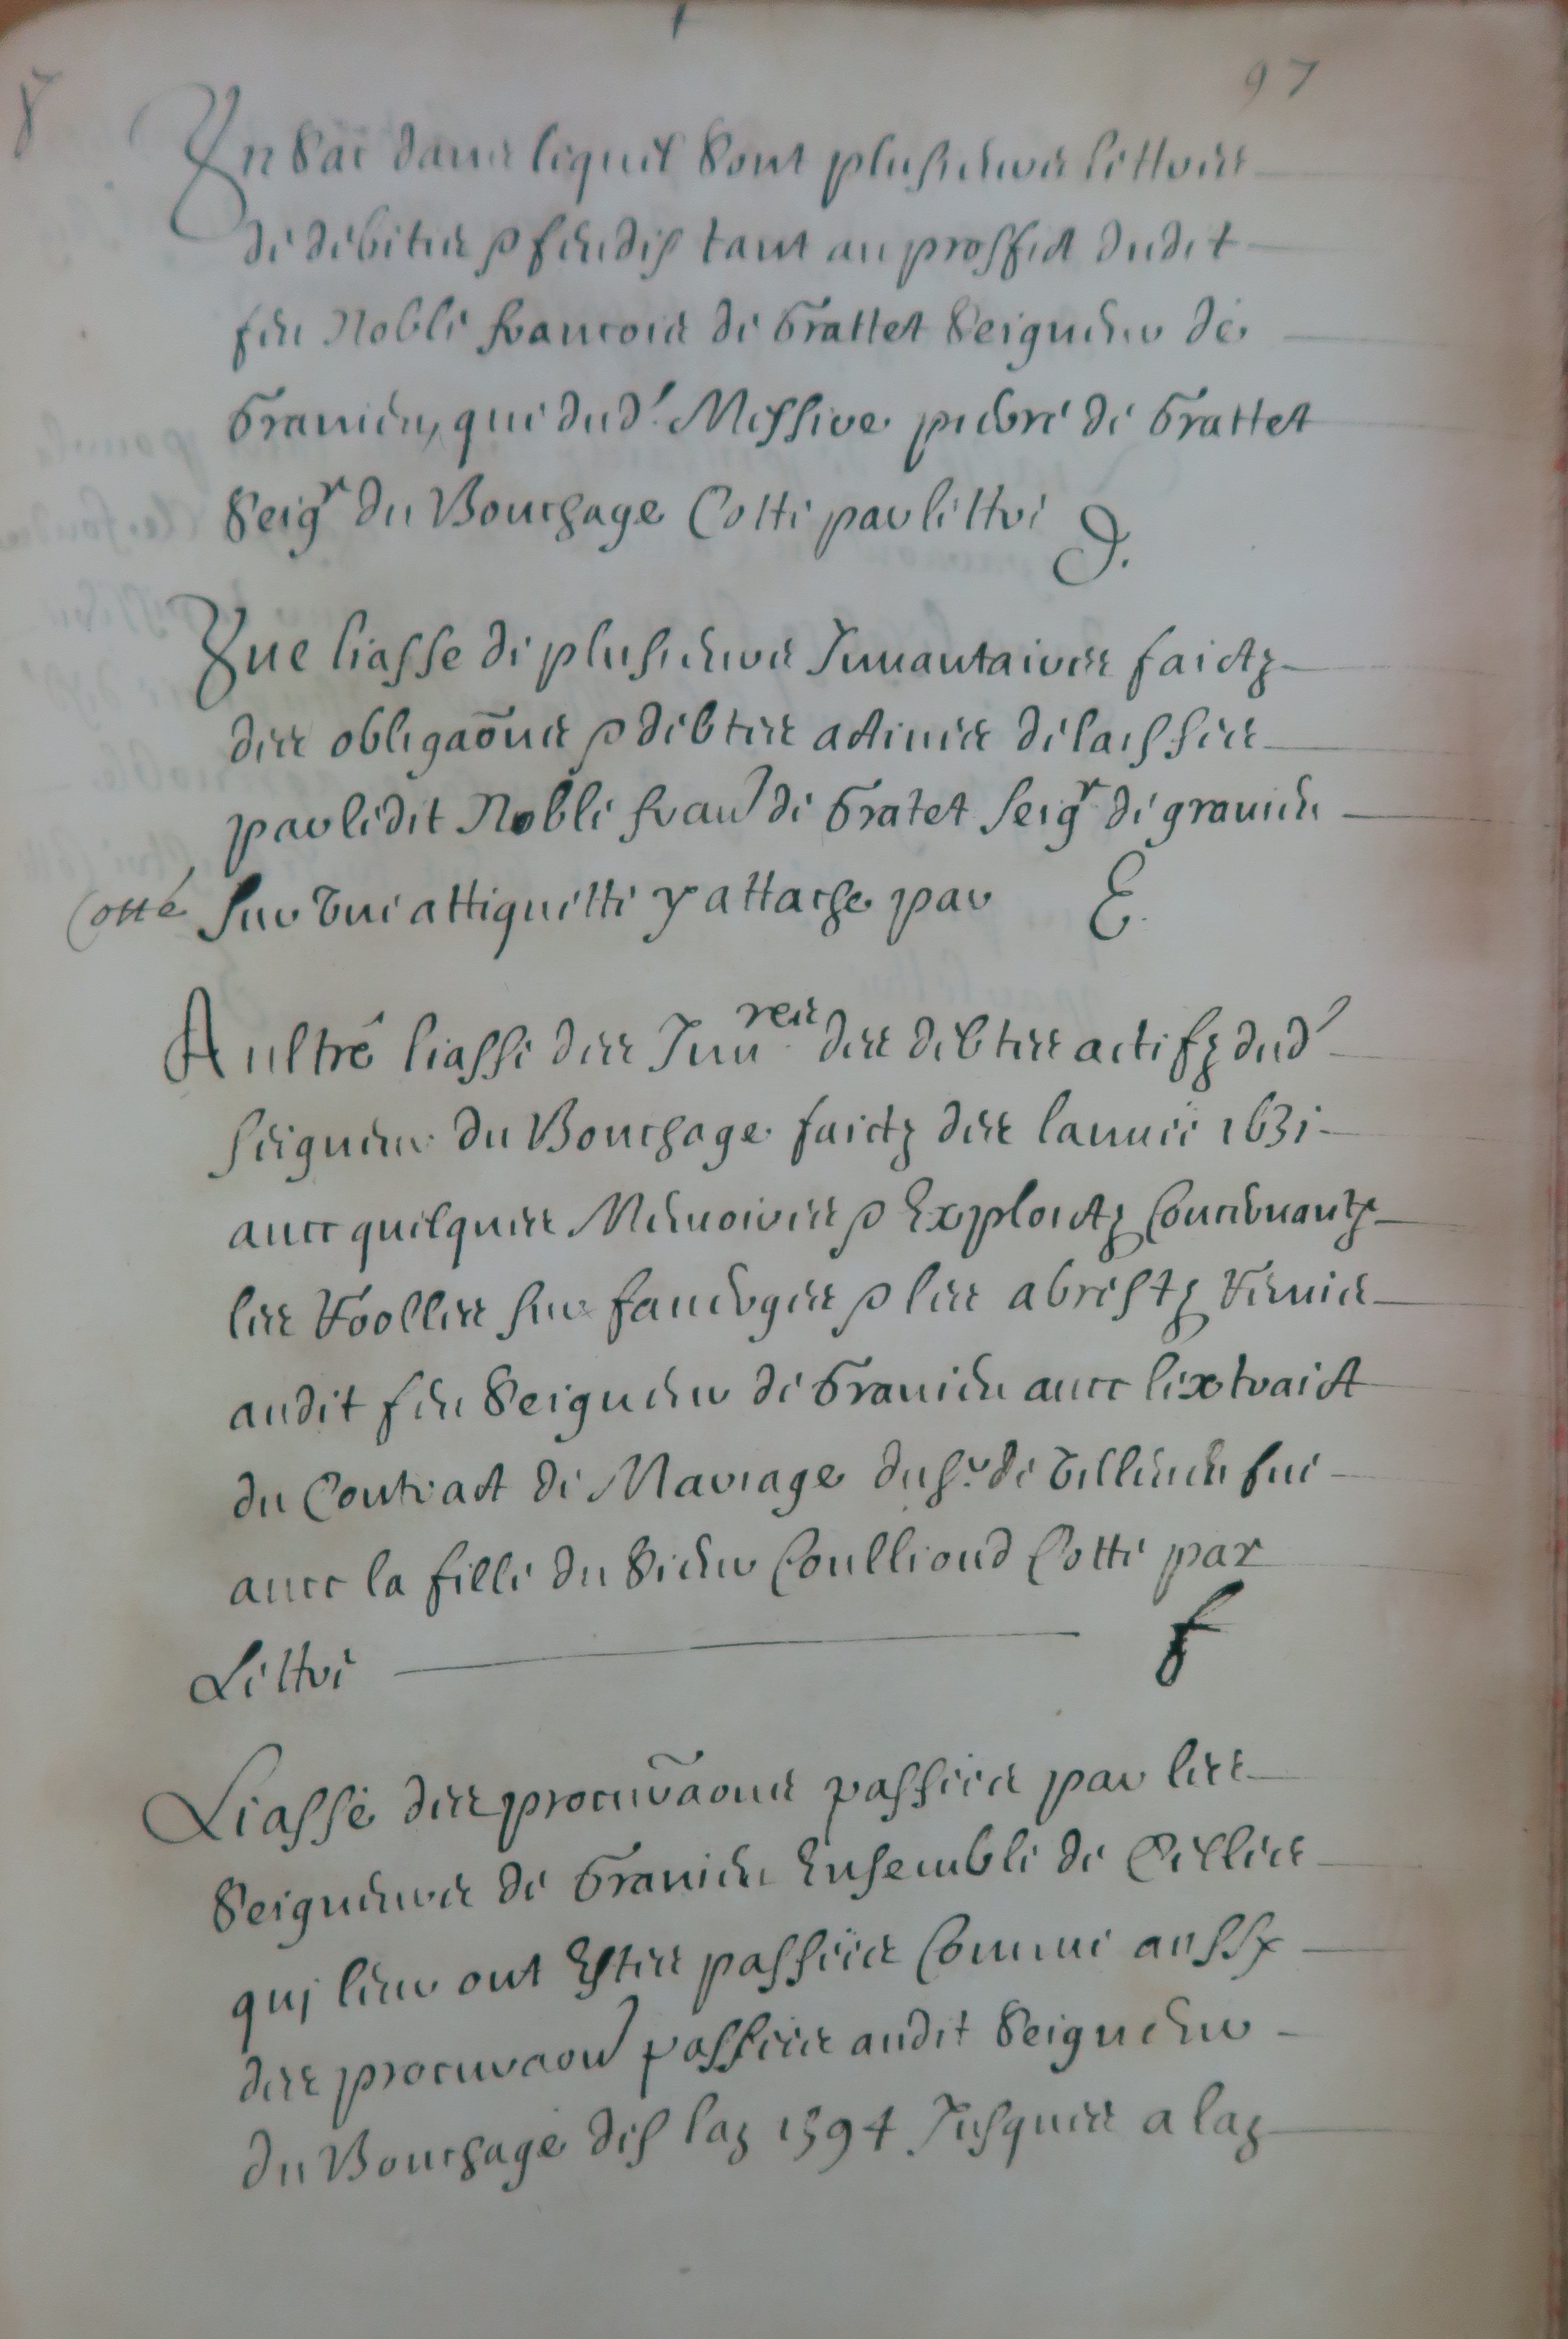 97
Un sac dans lequel sont plusieurs lettres
de debites & feudes tant au proffict dudit
feu Noble francois de Grattet Seigneur de
Granieu, que dud.t Messire pierre de Grattet
Seigr du Bouchage Cotte par lettre D.
Une liasse de plusieurs Inuantaires faictz
des obligaões & debtes actiues delaissees
par ledit Noble fran de Gratet seigr de granieu
Cotté sur vne attiquette y attache par E.
Aultre liasse des Inu.res des debtes actifz dud
seigneur du Bouchage faictz des lannee 1631
auec quelques Memoires & Exploictz Concernantz
les Roolles sur fauerges & les arrestz Renies
audit feu Seigneur de Granieu auec lextraict
du Contract de Mariage du sr de
auec la fille du Sieur Coulliond Cotte par
Lettre f
Liasse des procurãons passees par les
Seigneurs de Granieu Ensemble de Celles
quj leur ont Estes passees Comme aussy
des procuraon passees audit Seigneur
du Bouchage des laz 1594 Jusques a laz